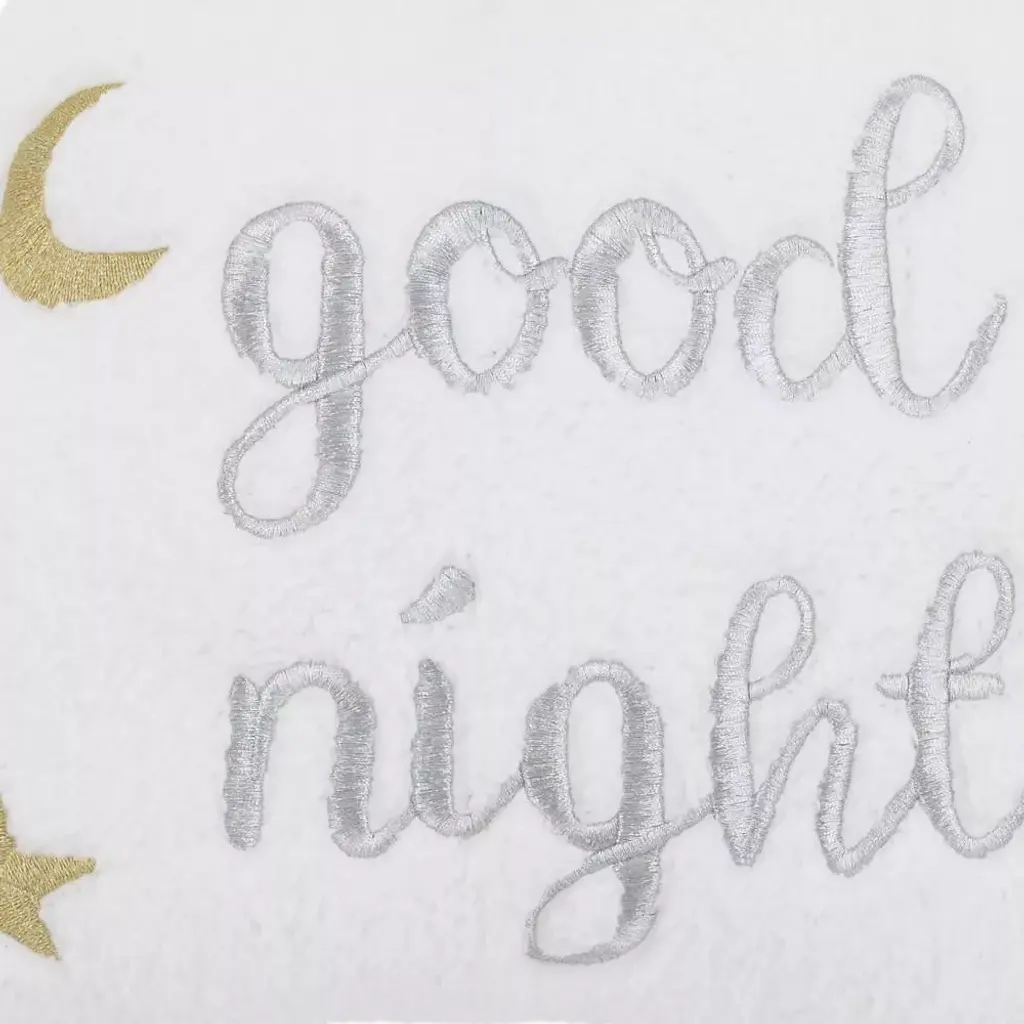 good
night